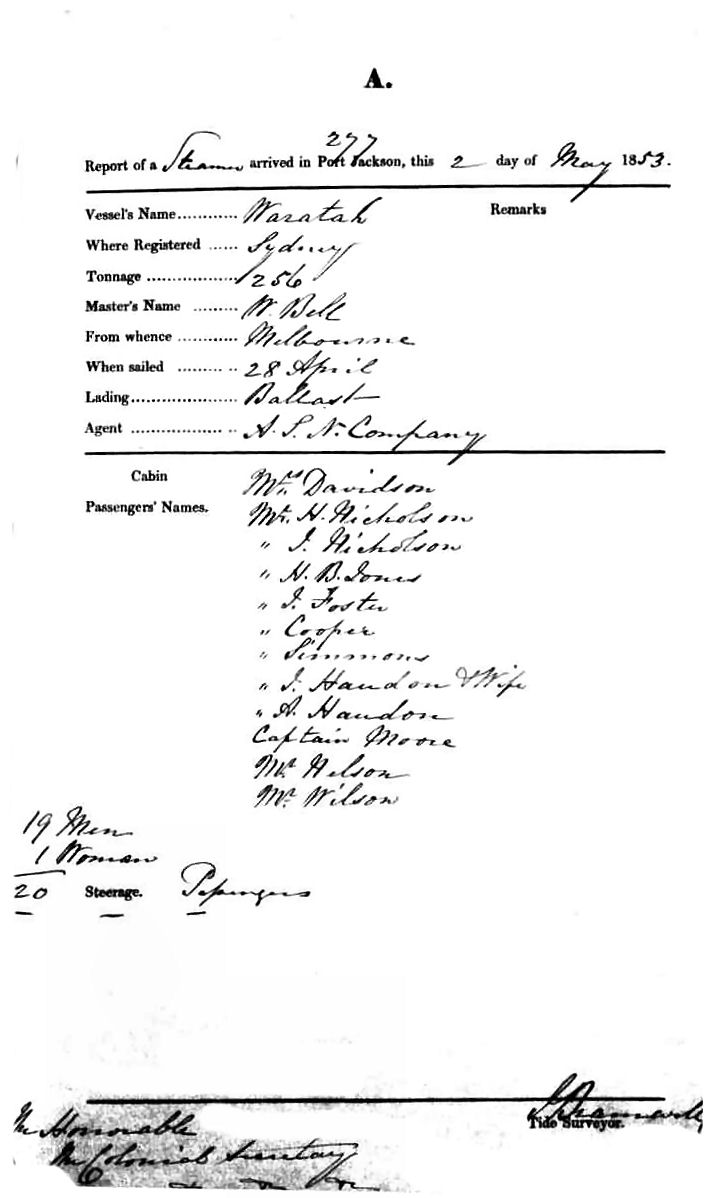 A.
277
Report of a Steamer arrived in Port Jackson, this 2 day of May 1853.
Vessel's Name............ Waratah Remarks
Where Registered ...... Sydney
Tonnage .................. 256
Master's Name ......... W. Bell
From whence ............ Melbourne
When sailed ......... .. 28 April
Lading..................... Ballast
Agent .................. .. A. S. N. Company
Cabin Mrs. Davidson
Passengers' Names. Mr. H. Nicholson
" J. Nicholson
" H. B. Jones
" J. Foster
" Cooper
" Simmons
" J. Haudon & Wife
" A. Haudon
Captain Moore
Mr. Nelson
Mr. Wilson
19 Men
1 Woman
20 Steerage. Passengers
Tide Surveyor.
The Honorable
The Colonial Secretary